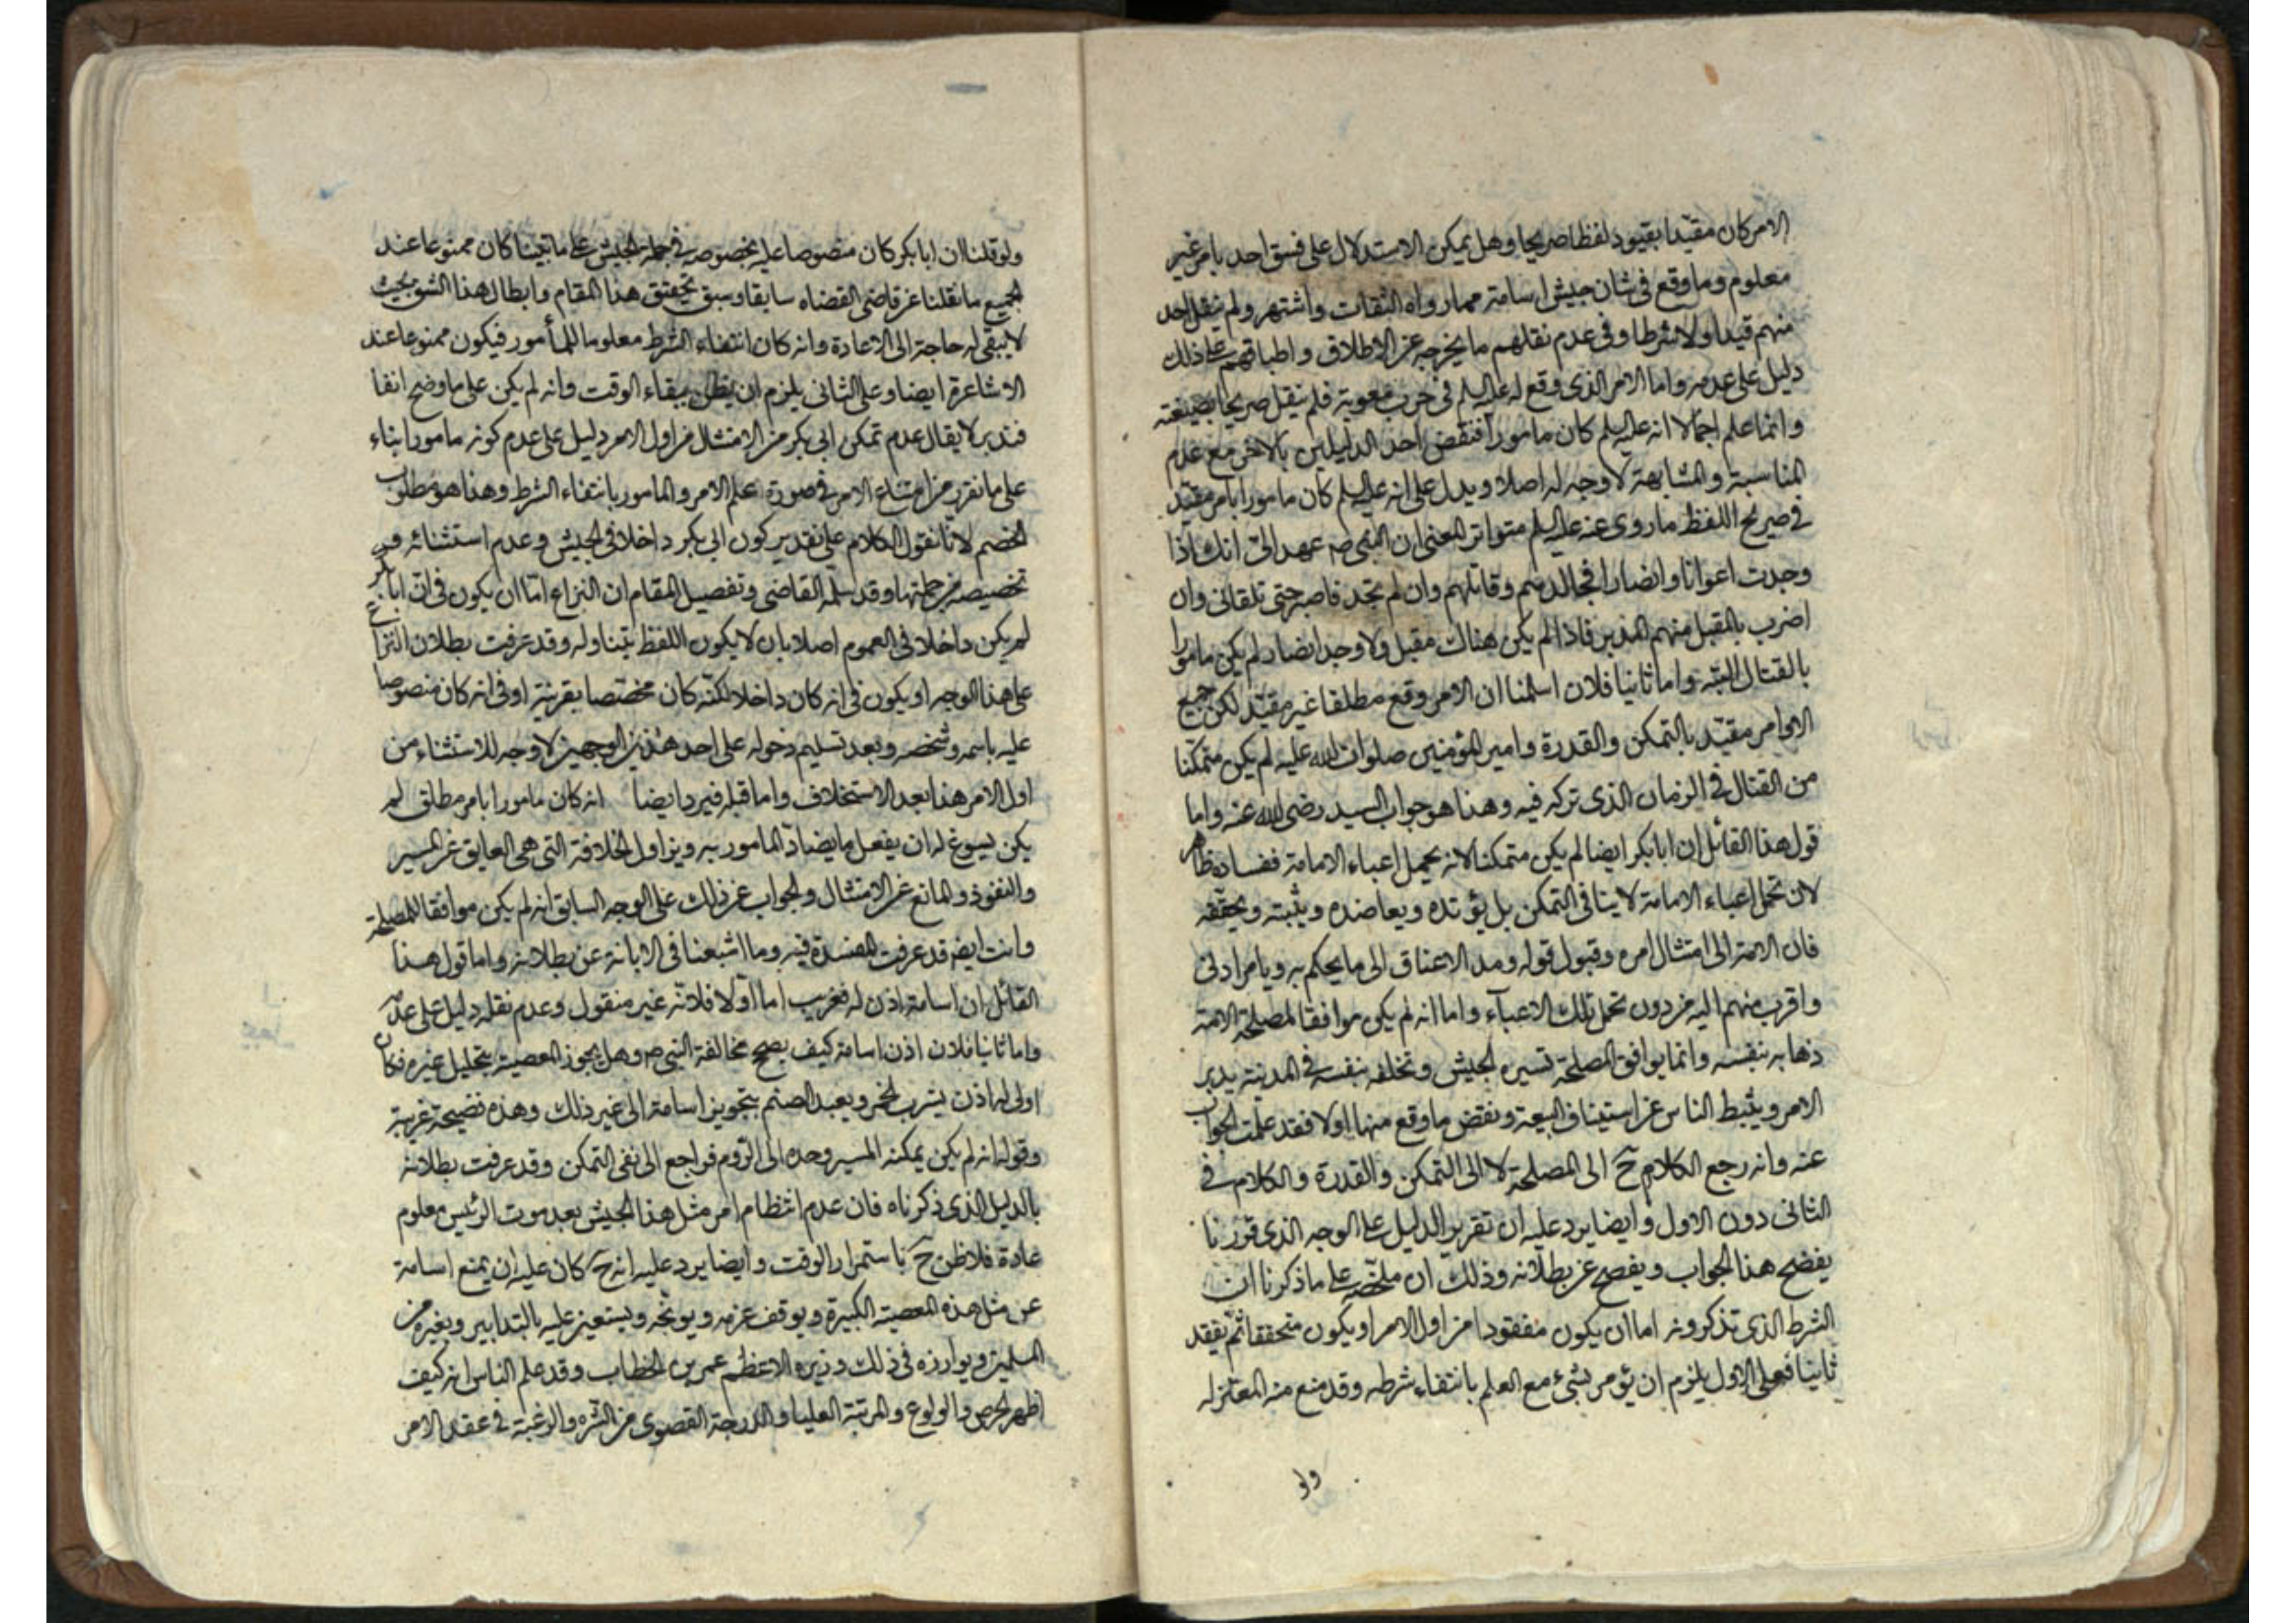 الامر كان مقيدا بقيود لفظا صريحا وهل يمكن الاستدلال على فسق احد بامر غير
معلوم وما وقع فى شان جيش اسامة مما رواه الثقات واشتهر ولم ينقل احد
منهم قيدا ولا شرطا وفى عدم نقلهم ما يخرجه عن الاطلاق واطباقهم على ذلك
دليل على عدمه واما الامر الذى وقع له عليه السلم فى حرب معوية فلم ينقل صريحا بصيغته
وانما علم اجمالا انه عليه السلم كان مامورا فنقض احد الدليلين بالاخر مع عدم
المناسبة والمشابهة لا وجه له اصلا ويدل على انه عليه السلم كان مامورا بامر مقيد
فى صريح اللفظ ما روى عنه عليه السلم متواتر المعنى ان النبى صم عهد الىّ انك اذا
وجدت اعوانا وانصارا فجالدهم وقاتلهم وان لم تجد فاصبر حتى تلقانى وان
اضرب بالمقبل منهم المدبر فاذا لم يكن هناك مقبل ولا وجد انصار لم يكن مامورا
بالقتال البتة واما ثانيا فلان اسلمنا ان الامر وقع مطلقا غير مقيد لكن جميع
الاوامر مقيد بالتمكن والقدرة وامير المؤمنين صلوات الله عليه لم يكن متمكنا
من القتال فى الزمان الذى تركه فيه وهذا هو جواب السيد رضى الله عنه واما
قول هذا القائل ان ابابكر ايضا لم يكن متمكنا لانه يحمل اعباء الامامة ففساده ظاهر
لان تحمل اعباء الامامة لا ينافى التمكن بل يؤيده ويعاضده ويثبته ويحققه
فان الامة الى امتثال امره وقبول قوله ومد الاعناق الى ما يحكم به ويامر ادنى
واقرب منهم اليه من دون تحمل تلك الاعباء واما انه لم يكن موافقا لمصلحة الامة
ذهابه بنفسه وانما يوافق المصلحة تسييره الجيش وتخلفه بنفسه فى المدينة يدبر
الامر ويثبط الناس عن استيناف البيعة ونقض ما وقع منها اولا فقد علمت الجواب
عنه وانه رجع الكلام ح الى المصلحة لا الى التمكن والقدرة والكلام فى
الثانى دون الاول وايضا يرد عليه ان تقرير الدليل على الوجه الذى قررنا
يفضح هذا الجواب ويفصح عن بطلانه وذلك ان ملخصه على ما ذكرنا ان
الشرط الذى تذكرونه اما ان يكون مفقودا من اول الامر او يكون متحققا ثم يفقد
ثانيا فعلى الاول يلزم ان يؤمر بشىء مع العلم بانتفاء شرطه وقد منع منه المعتزله
ولو
ولو قلنا ان ابابكر كان منصوصا عليه بخصوصه فى جملة الجيش على ما بينا كان ممنوعا عند
الجميع ما نقلنا عن قاضى القضاه سابقا وسبق تحقيق هذا المقام وابطال هذا الشق بحيث
لا يبقى له حاجة الى الاعادة وانه كان انتفاء الشرط معلوما للمأمور فيكون ممنوعا عند
الاشاعرة ايضا وعلى الثانى يلزم ان يظن ببقاء الوقت وانه لم يكن على ما وضح انفا
فتدبر لا يقال عدم تمكن ابى بكر من الامتثال من اول الامر دليل على عدم كونه مامورا بناء
على ما تقرر من امتناع الامر فى صورة علم الامر والمامور بانتفاء الشرط وهذا هو مطلوب
الخصم لانا نقول الكلام على تقدير كون ابى بكر داخلا فى الجيش وعدم استثنائه و
تخصيصه من جملتها وقد سلمه القاضى وتفصيل المقام ان النزاع اما ان يكون فى ان ابابكر
لم يكن داخلا فى العموم اصلا بان لا يكون اللفظ يتناوله وقد عرفت بطلان النزاع
على هذا الوجه او يكون فى انه كان داخلا لكنه كان مختصا بقرينة او فى انه كان منصوصا
عليه باسمه وشخصه وبعد تسليم دخوله على احد هذين الوجهين لا وجه للاستثناء من
اول الامر هذا بعد الاستخلاف واما قبله فيرد ايضا انه كان مامورا بامر مطلق لم
يكن يسوغ له ان يفعل ما يضاد المامور به ويزاول الخلافة التى هى العايق عن المسير
والنفوذ والمانع عن الامتثال والجواب عن ذلك على الوجه السابق انه لم يكن موافقا للمصلحة
وانت ايضا قد عرفت المفسدة فيه وما اشبعنا فى الابانة عن بطلانه واما قول هذا
القائل ان اسامة اذن له فغريب اما اولا فلانه غير منقول وعدم نقله دليل على عدمه
واما ثانيا فلان اذن اسامة كيف يصحح مخالفة النبى صم وهل يجوز المعصية بتحليل غيره فكان
اولى له اذن يشرب الخمر ويعبد الصنم بتجويز اسامة الى غير ذلك وهذه نضيحة غريبة
وقوله انه لم يكن يمكنه المسير وحده الى الروم فراجع الى نفى التمكن وقد عرفت بطلانه
بالدليل الذى ذكرناه فان عدم انتظام امر مثل هذا الجيش بعد موت الرئيس معلوم
عادة فلا ظن ح باستمرار الوقت وايضا يرد عليه انه ح كان عليه ان يمنع اسامة
عن مثل هذه المعصية الكبيرة ويوقف عزمه ويوبخه ويستعين عليه بالتدابير وبغيره من
المسلمين ويوازره فى ذلك وزيره الاعظم عمر بن الخطاب وقد علم الناس انه كيف
اظهر الحرص والولوع والمرتبة العليا والدرجة القصوى من الشره والرغبة فى عقد الامر